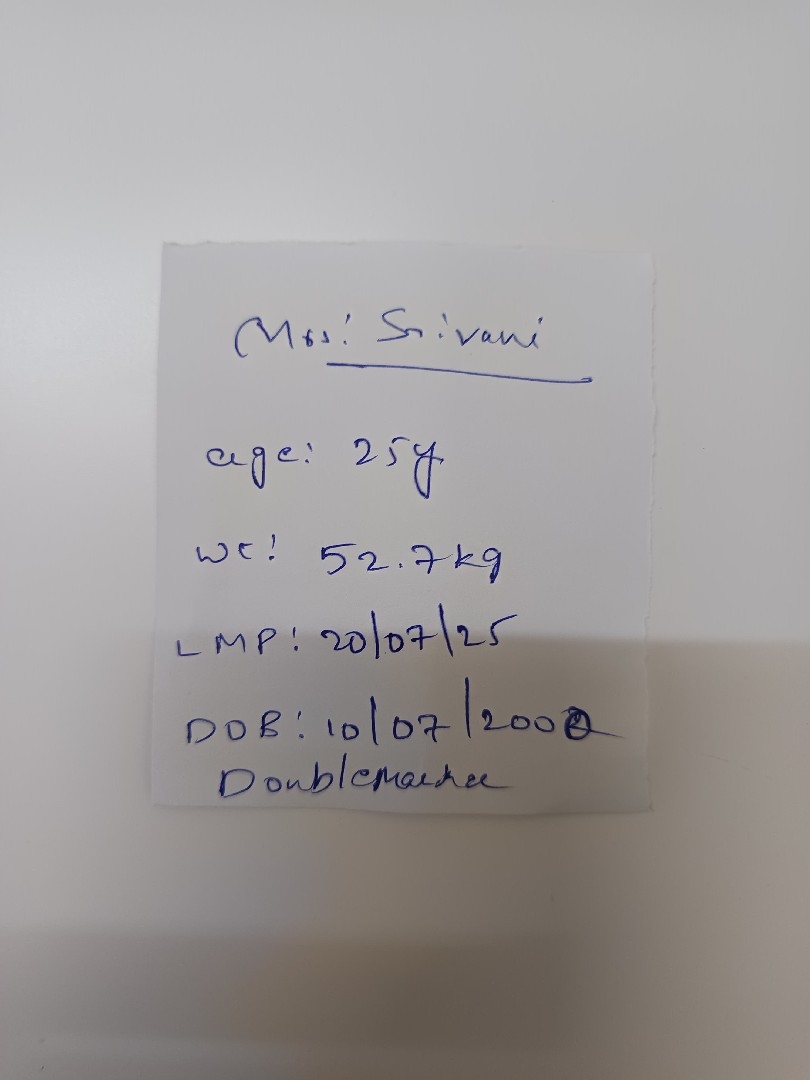 Mrs: Srivani
age: 25y
wt: 52.7kg
LMP: 20/07/25
DOB: 10/07/200
Doublemarker